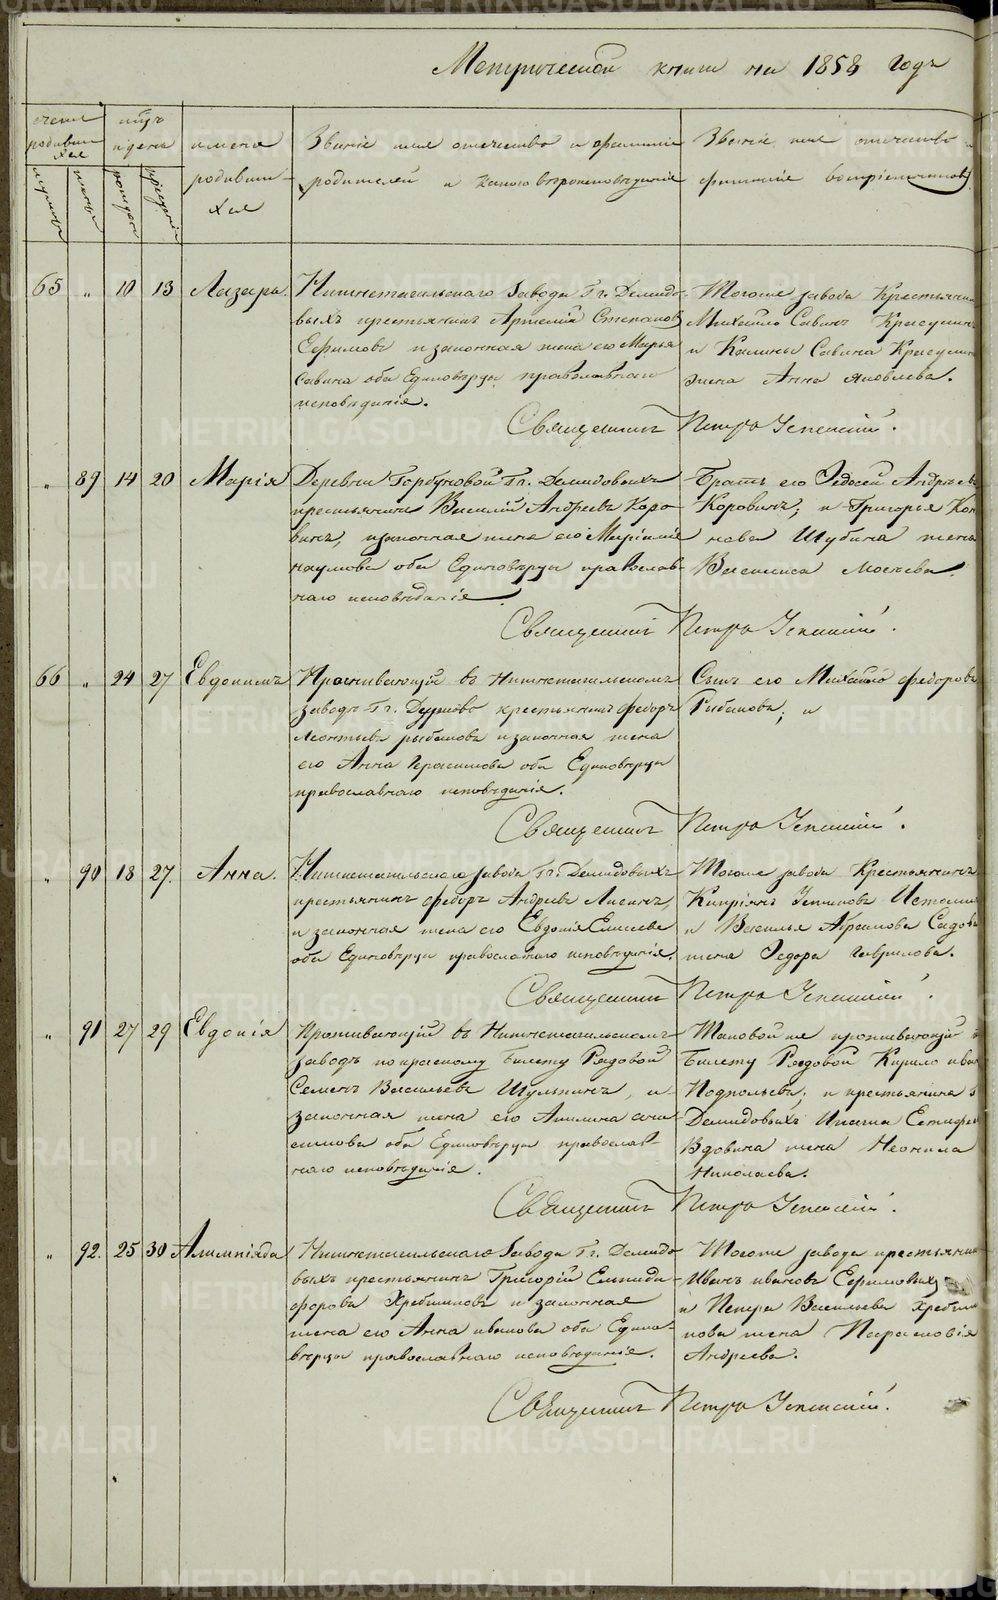 Метрической книги на 1858 годъ
счетъ родивших ся
мужеска
женска
мцъ и день
рожденія
крещенія
имена родивших ся
Званіе имя отечество и фамиліи
родителей и какого вѣроисповѣданія
Званіе имя отечество и
фамиліи воспріемниковъ
65 „ 10 13 Лазарь.
Нижнетагильскаго завода Гг. Демидо-
выхъ крестьянинъ Артемій Степановъ
Ефимовъ и законная жена его Марья
Савина оба Единовѣрцы православнаго
исповѣданія.
Тогоже завода Крестьянинъ
Михайло Савинъ
и Калины Савина
жена Анна Яковлева.
Священникъ Петръ Успенскій.
„ 89 14 20 Марія
Деревни Горбуновой Гг. Демидовыхъ
крестьянинъ Василій Андреевъ Коро-
винъ, и законная жена его
Наумова оба Единовѣрцы православ-
наго исповѣданія
Братъ его Федосей Андреевъ
Коровинъ; и Григорья
Шубина жена
Василиса Мосеева.
Священникъ Петръ Успенскій.
66 „ 24 27 Евдокимъ
Проживающій въ Нижнетагильскомъ
заводѣ Гг. крестьянинъ Федоръ
Леонтьевъ Рыбаковъ и законная жена
его Анна Герасимова оба Единовѣрцы
православнаго исповѣданія.
Сынъ его Михайло Федоровъ
Рыбаковъ; и
Священникъ Петръ Успенскій.
„ 90 18 27. Анна.
Нижнетагильскаго завода Гг. Демидовыхъ
крестьянинъ Федоръ Андреевъ
и законная жена его Евдокія Елисеева
оба Единовѣрцы православнаго исповѣданія.
Тогоже завода Крестьянинъ
Кипріянъ
и Василья Абрамова
жена Федора Гаврилова.
Священникъ Петръ Успенскій.
„ 91 27 29 Евдокія
Проживающій въ Нижнетагильскомъ
заводѣ по красному билету Рядовой
Семенъ Васильевъ Шулпинъ, и
законная жена его Акилина
симова оба Единовѣрцы православ-
наго исповѣданія.
Таковой же проживающій
билету Рядовой Кирило
Подпольевъ; и крестьянина
Демидовыхъ Ипата
Вдовина жена Неонила
Николаева.
Священникъ Петръ Успенскій.
„ 92. 25 30 Алимпіяда
Нижнетагильскаго завода Гг. Демидо-
выхъ крестьянинъ Григорій Епиида-
форовъ Хребтиковъ и законная
жена его Анна Иванова оба Едино-
вѣрцы православнаго исповѣданія.
Тогоже завода крестьянинъ
Иванъ Ивановъ Ефимовыхъ
и Петра Васильева
жена Парасковія
Андреева.
Священникъ Петръ Успенскій.
METRIKI.GASO-URAL.RU